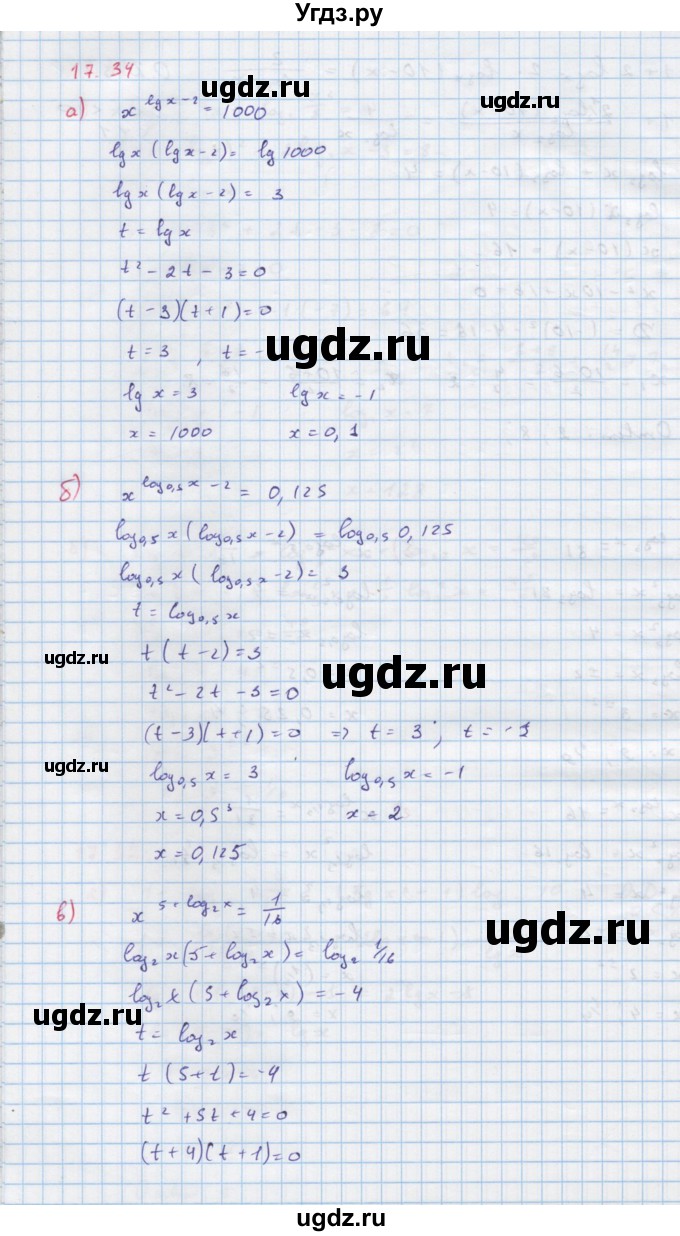 Угдз.ру
17.34
а) x^(lg x - 2) = 1000
ugdz.ru
ugdz.ru
lg x (lg x - 2) = lg 1000
lg x (lg x - 2) = 3
t = lg x
t² - 2t - 3 = 0
(t - 3)(t + 1) = 0
ugdz.ru
t = 3 , t = -
lg x = 3 lg x = -1
x = 1000 x = 0,1
б) x^(log₀,₅ x - 2) = 0,125
log₀,₅ x (log₀,₅ x - 2) = log₀,₅ 0,125
log₀,₅ x (log₀,₅ x - 2) = 3
t = log₀,₅ x
ugdz.ru
t (t - 2) = 3
ugdz.ru
t² - 2t - 3 = 0
(t - 3)(t + 1) = 0 => t = 3 ; t = -1
ugdz.ru
log₀,₅ x = 3 log₀,₅ x = -1
x = 0,5³ x = 2
x = 0,125
в) x^(5 + log₂ x) = 1/16
ugdz.ru
log₂ x (5 + log₂ x) = log₂ 1/16
log₂ x (5 + log₂ x) = -4
ugdz.ru
t = log₂ x
t (5 + t) = -4
t² + 5t + 4 = 0
(t + 4)(t + 1) = 0
ugdz.ru
ugdz.ru